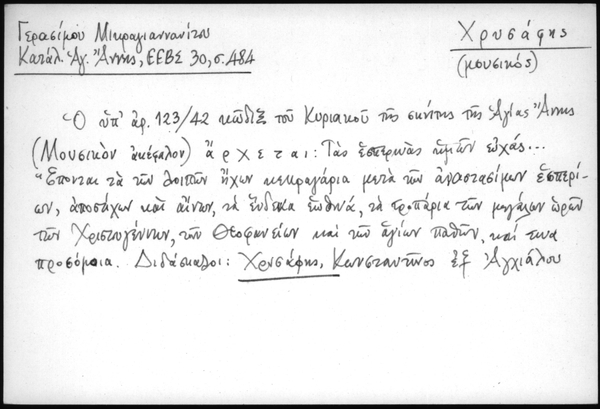 Γερασίμου Μικραγιαννανίτου
Κατάλ. Ἁγ. Ἄννης, ΕΕΒΣ 30, σ. 484
Χρυσάφης
(μουσικός)
Ὁ ὑπ' ἀρ. 123/42 κῶδιξ τοῦ Κυριακοῦ τῆς σκήτης τῆς Ἁγίας Ἄννης
(Μουσικὸν ἀκέφαλον) ἄρχεται: Τὰς ἑσπερινὰς ἡμῶν εὐχάς...
"Ἕπονται τὰ τῶν λοιπῶν ἤχων κεκραγάρια μετὰ τῶν ἀναστασίμων ἑσπερί-
ων, ἀποστίχων καὶ αἴνων, τὰ ἕνδεκα ἑωθινά, τὰ τροπάρια τῶν μεγάλων ὡρῶν
τῶν Χριστουγέννων, τῶν Θεοφανείων καὶ τῶν ἁγίων παθῶν, καί τινα
προσόμοια. Διδάσκαλοι: Χρυσάφης, Κωνσταντῖνος ἐξ Ἀγχιάλου